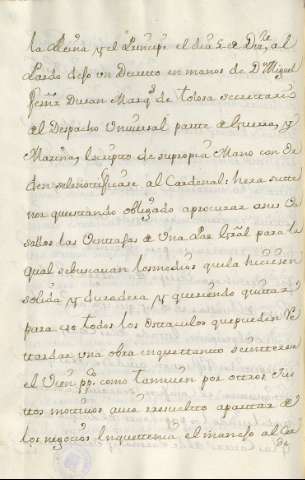 la Reina y el Principe el dia 5 de Dizre, al
Pardo dejo un Decreto en manos de Dn Miguel
Fernz Duran Marqs de tolosa secretario
del Despacho Universal parte de Guerra, y
Marina, escripto de su propia Mano con or
den se le notificase al Cardenal: hera su te
nor que estando obligado a procurar a sus Va
sallos las Ventajas de Una Paz Gral para la
qual se buscavan los medios que la hiciesen
solida y duradera y queriendo quitar
para ello todos los ostaculos que pueden Re
tardar una obra en que tanto se interesa
el Vien ppco como tanvien por ottros Jus
tos motivos avia resuelto apartar de
los negocios en que tenia el manejo al Car